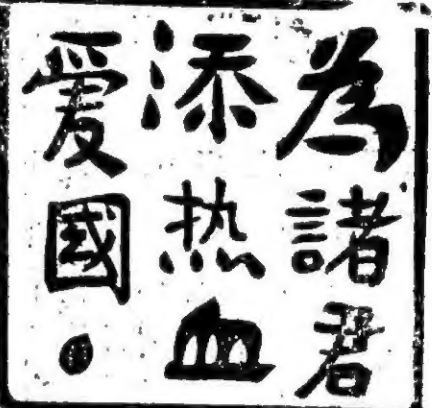 為諸君
添热血
爱國●